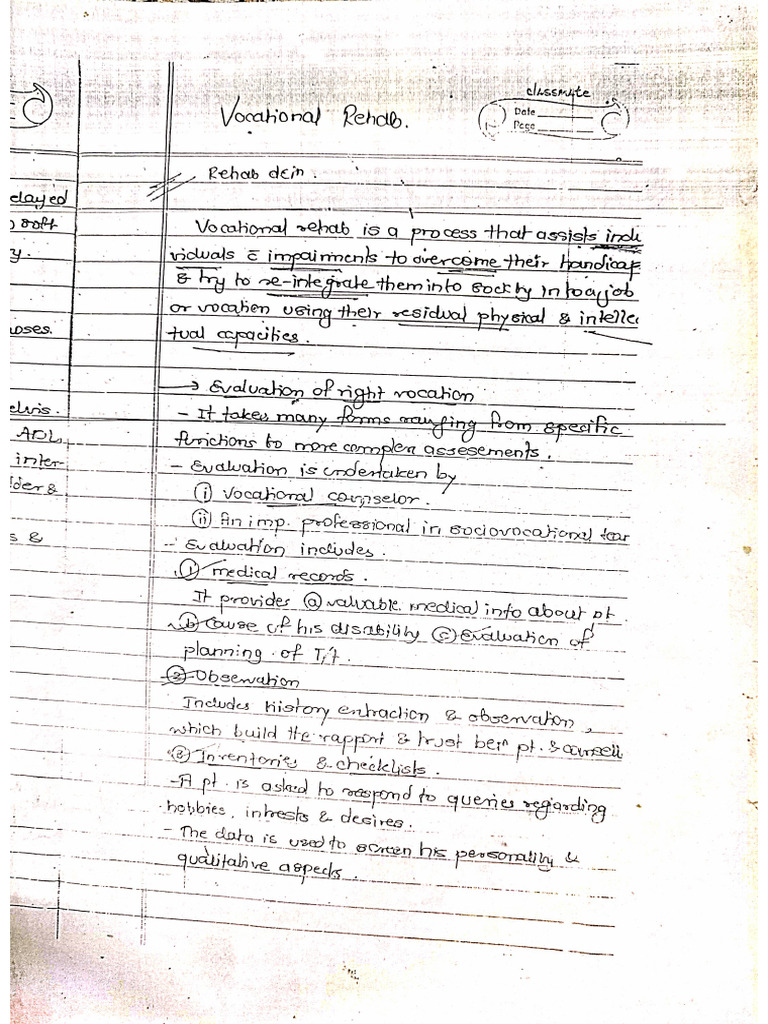 classmate
Date
Page
Vocational Rehab.
Rehab defn.
Vocational rehab is a process that assists indi
viduals c̄ impairments to overcome their handicap
& try to re-integrate them into society into a job
or vocation using their residual physical & intellec
tual capacities.
→ Evaluation of right vocation
- It takes many forms ranging from specific
functions to more complex assesements.
- Evaluation is undertaken by
(i) vocational counselor.
(ii) An imp. professional in sociovocational team
- Evaluation includes.
① medical records.
It provides ⓐ valuable medical info about pt.
ⓑ Cause of his disability ⓒ Evaluation of
planning of T/t.
② Observation
Includes History extraction & observation,
which build the rapport & trust betn pt. & counsell
③ Inventories & checklists.
- A pt. is asked to respond to queries regarding
hobbies, intrests & desires.
- The data is used to screen his personality &
qualitative aspects.
elayed
soft
y.
oses.
elvis.
ADL
inter-
lder &
s &